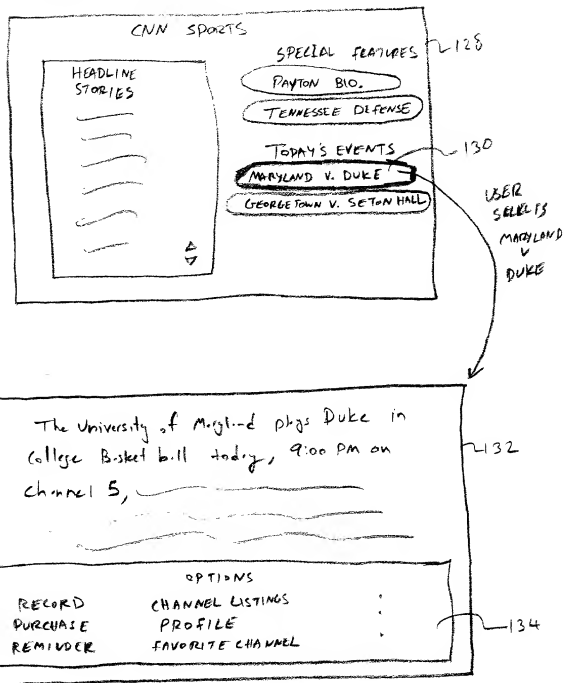 CNN SPORTS
SPECIAL FEATURES
128
HEADLINE
STORIES
PAYTON BIO.
TENNESSEE DEFENSE
TODAY'S EVENTS
130
MARYLAND V. DUKE
GEORGETOWN V. SETON HALL
USER
SELECTS
MARYLAND
V
DUKE
The University of Maryland plays Duke in
College Basket ball today, 9:00 PM on
channel 5,
132
OPTIONS
RECORD CHANNEL LISTINGS
PURCHASE PROFILE
REMINDER FAVORITE CHANNEL
134